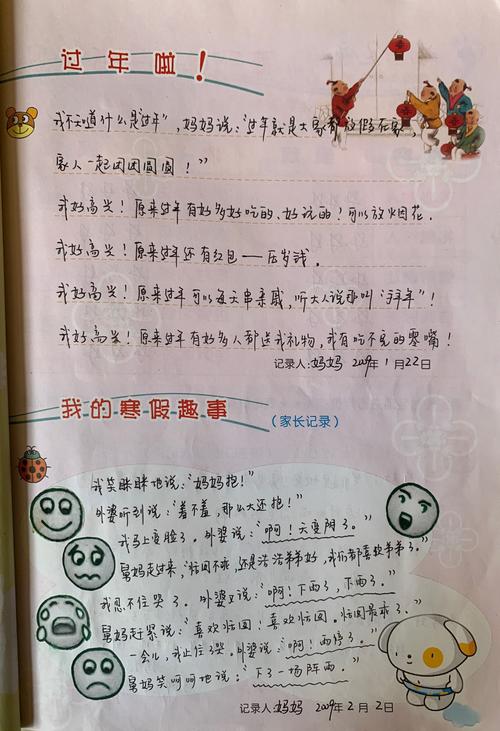 过年啦！
我不知道什么是"过年"，妈妈说："过年就是大家都放假在家，
家人一起团团圆圆！"
我好高兴！原来过年有好多好吃的、好玩的！可以放烟花．
我好高兴！原来过年还有红包——压岁钱．
我好高兴！原来过年可以每天串亲戚，听大人说那叫"拜年"！
我好高兴！原来过年有好多人都送我礼物，我有吃不完的零嘴！
记录人：妈妈 2009年1月22日
我的寒假趣事
（家长记录）
我笑眯眯地说："妈妈抱！"
外婆听到说："羞不羞，那么大还抱！"
我马上变脸了．外婆说："啊！天变阴了。"
舅妈走过来，"不乖，还是活活弟弟好，我们都喜欢弟弟了．"
我忍不住哭了．外婆又说："啊！下雨了，下雨了．"
舅妈赶紧说："喜欢！喜欢．最乖了．"
一会儿，我止住了哭．外婆说："啊！雨停了．"
舅妈笑呵呵地说："下了一场阵雨．"
记录人：妈妈 2009年2月2日